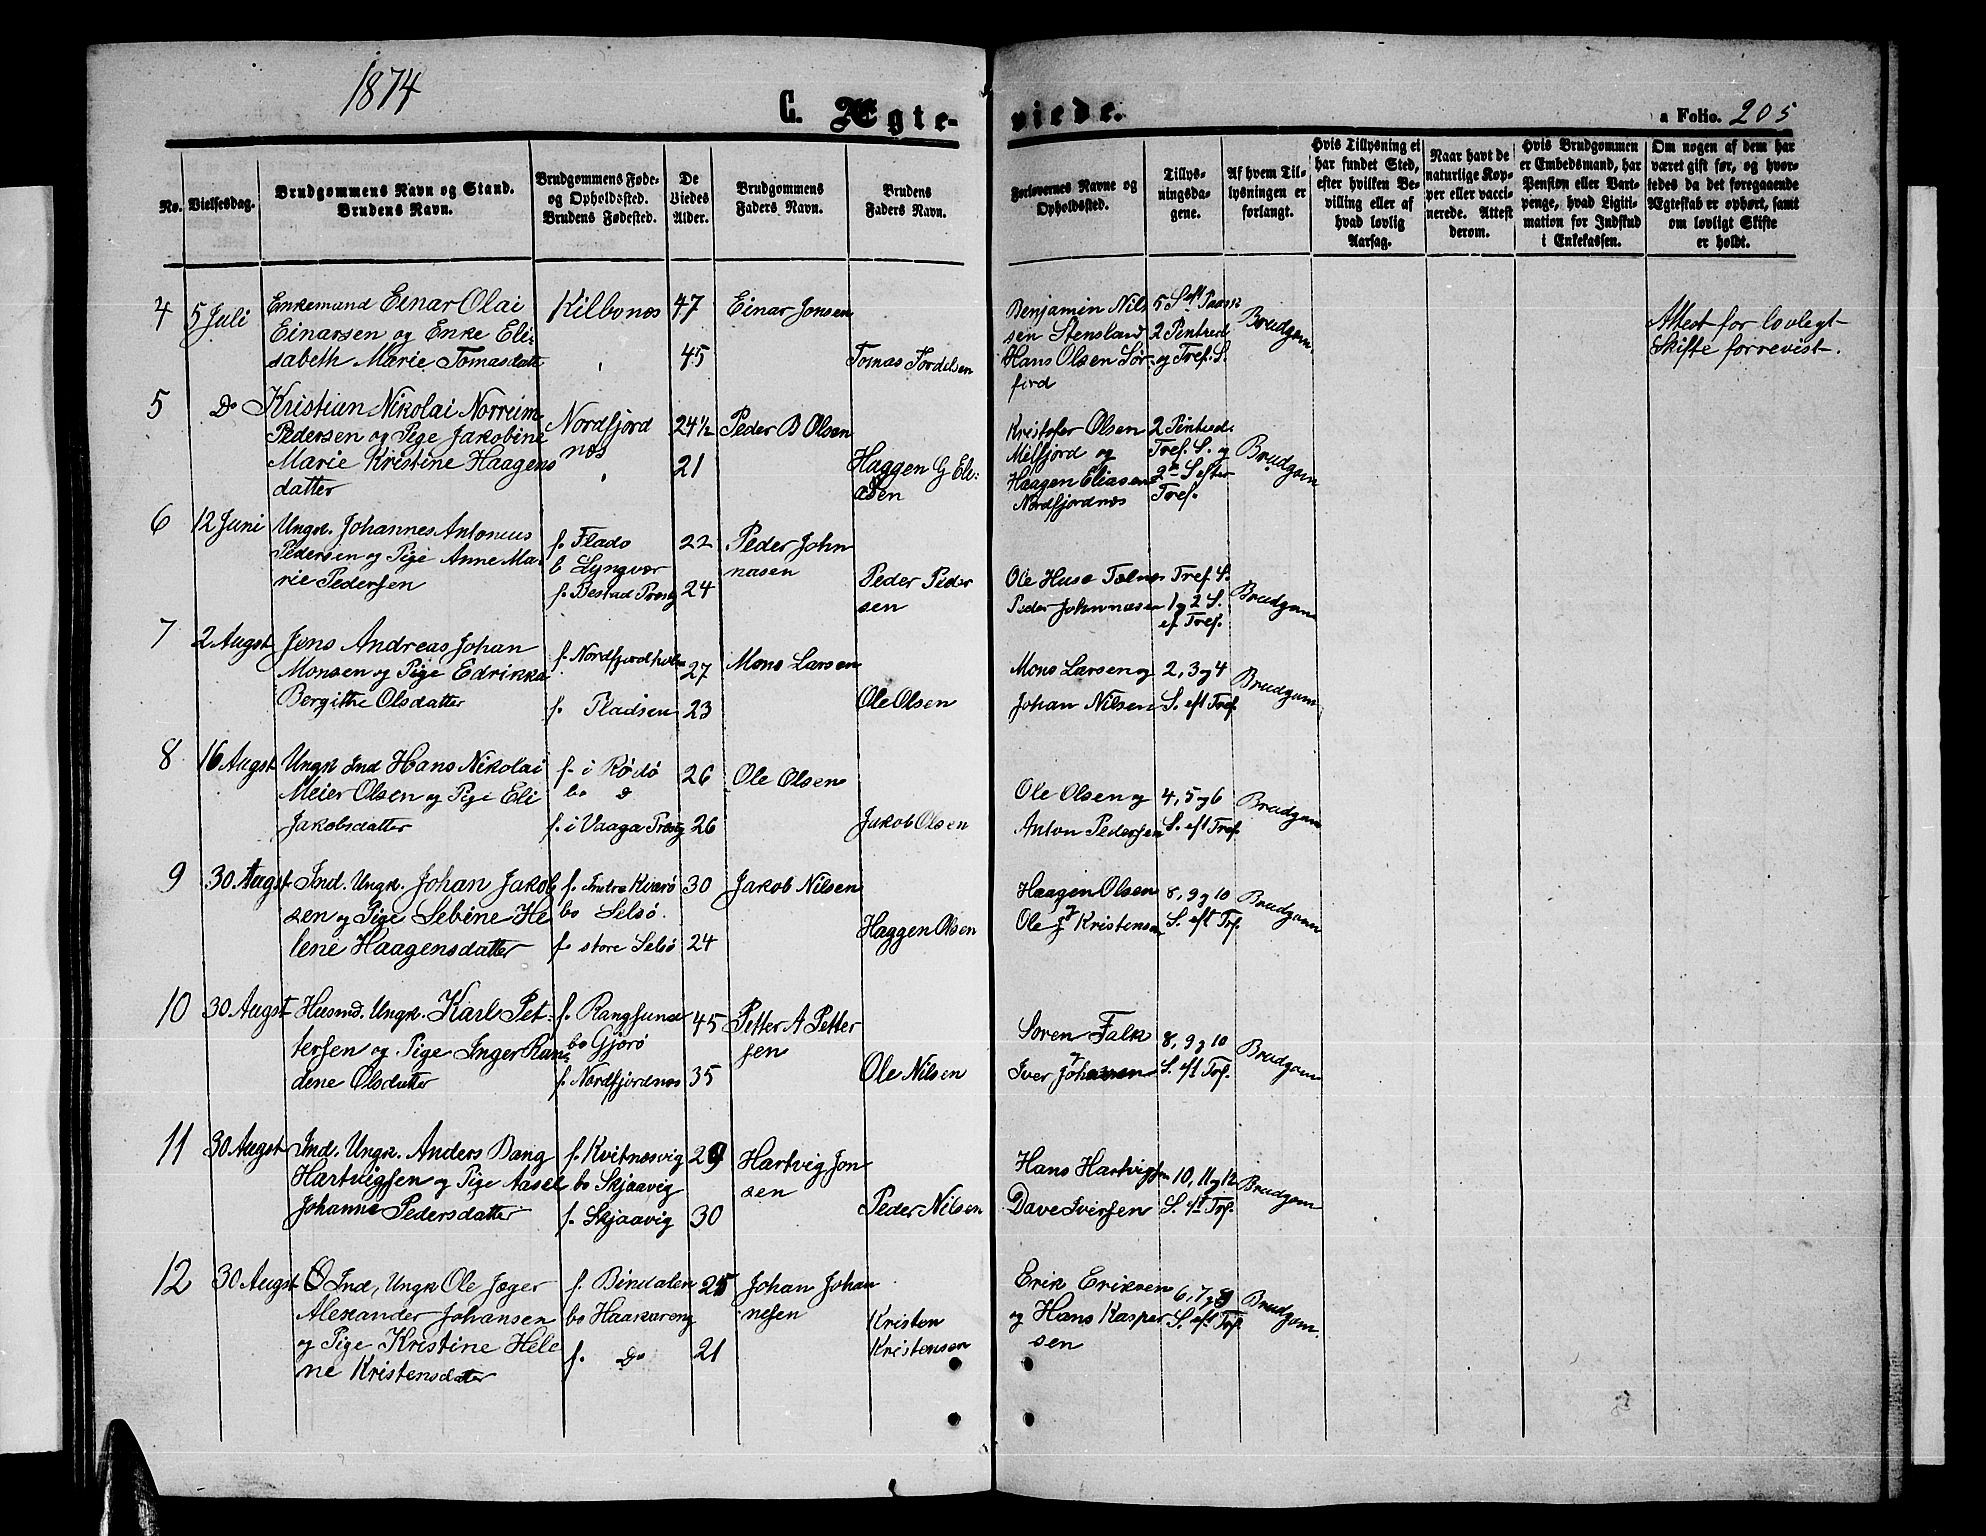 1874
C. Ægte-
viede.
a Folio. 205
No.
Vielsesdag.
Brudgommens Navn og Stand.
Brudens Navn.
Brudgommens Føde-
og Opholdssted.
Brudens Fødested.
De
Viedes
Alder.
Brudgommens
Faders Navn.
Brudens
Faders Navn.
Forlovernes Navne og
Opholdssted.
Tillys-
ningsda-
gene.
Af hvem Til-
lysningen er
forlangt.
Hvis Tillysning ei
har fundet Sted,
efter hvilken Be-
villing eller af
hvad lovlig
Aarsag.
Naar havt de
naturlige Kop-
per eller vacci-
nerede. Attest
derom.
Hvis Brudgommen
er Embedsmand, har
Pension eller Vart-
penge, hvad Ligiti-
mation for Indskud
i Enkekassen.
Om nogen af dem har
været gift før, og hvor-
ledes da det foregaaende
Ægteskab er ophørt, samt
om lovligt Skifte
er holdt.
4 5 Juli
Enkemand Einar Olai
Einarsen og Enke Eli-
sabeth Marie Tomasdatt
Kilbones
47
45
Einar Jonsen
Tomas Tordelsen
Benjamin Nils
sen Stensland
Hans Olsen Sør-
fjord
2 Pintred
og Tref. S.
Brudgom.
Attest for lovlegt
Skifte forrevist.
5 Do
Kristian Nikolai Norrum
Pedersen og Pige Jakobine
Marie Kristine Haagens
datter
Nordfjord
nes
24 1/2
21
Peder B Olsen
Haggen G Eli-
asen
Kristofer Olsen
Melfjord og
Haagen Eliasen
Nordfjordnes
2 Pintred.
Tref. S. og
2den S efter
Tref.
Brudgom
6 12 Juni
Ungk. Johannes Antonius
Pedersen og Pige Anne Ma-
rie Pedersen
f. Flado
b Lyngvær
f. Bestad Præstg
22
24
Peder John
nasen
Peder Peder
sen
Ole Huse Tælnes
Peder Johnnæsen
Tref. S.
1 og 2 S.
ef. Tref.
Brudgom
7 2 Augst
Jens Andreas Johan
Monsen og Pige Edrikka
Bergithe Olsdatter
f. Nordfjordholm
f. Pladsen
27
23
Mons Larsen
Ole Olsen
Mons Larsen og
Johan Nilsen
2, 3 og 4
S. eft Tref.
Brudgom
8 16 Augst
Ungk Ind Hans Nikolai
Meier Olsen og Pige Eli
Jakobsdatter
f. i Rødø
bo d
f. i Vaaga Præstg
26
26
Ole Olsen
Jakob Olsen
Ole Olsen og
Anton Pedersen
4, 5 og 6
S. eft Tref.
Brudgom
9 30 Augst
Ind. Ungk. Johan Jakob
sen og Pige Sebine He
lene Haagensdatter
f. Indre Kvarø
bo Selsø.
f. store Selsø
30
24
Jakob Nilsen
Haggen Olsen
Haagen Olsen
Ole J Kristensen
8, 9 og 10
S. eft Trf.
Brudgom
10 30 Augst
Husmd. Ungk. Karl Pet-
tersen og Pige Inger Ran-
dene Olsdatter
f. Rangsund
bo Gjørø
f. Nordfjordnes
45
35
Petter A Petter
sen
Ole Nilsen
Soren Falk
Iver Johansen
8, 9 og 10
S. eft Trf.
Brudgom
11 30 Augst
Ind. Ungk. Anders Dang
Hartvigsen og Pige Aasel
Johanne Pedersdatter
f. Kvitnesvig
bo Skjaavig
f. Skjaavig
29
30
Hartvig Jon
sen
Peder Nilsen
Hans Hartvigsen
Dave Iversen
10, 11 og 12
S. eft Trf.
Brudgom
12 30 Augst
Ind, Ungk Ole Jæger
Alexander Johansen
og Pige Kristine Hele
ne Kristensdatter
f. Bindalen
bo Haakareng
f. Do
25
21
Johan Johan
nesen
Kristen
Kristensen
Erik Eriksen
og Hans Kasper
sen
6, 7 og 8
S. eft Trf.
Brudgom.